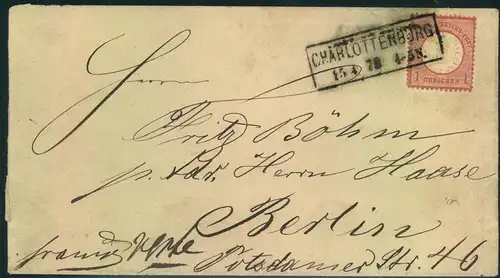 CHARLOTTENBURG
15 4 73 4-5N.
1 GROSCHEN 1
Herrn
Fritz Böhm
p. Adr. Herrn Haase
Berlin
Potsdamer Str. 46